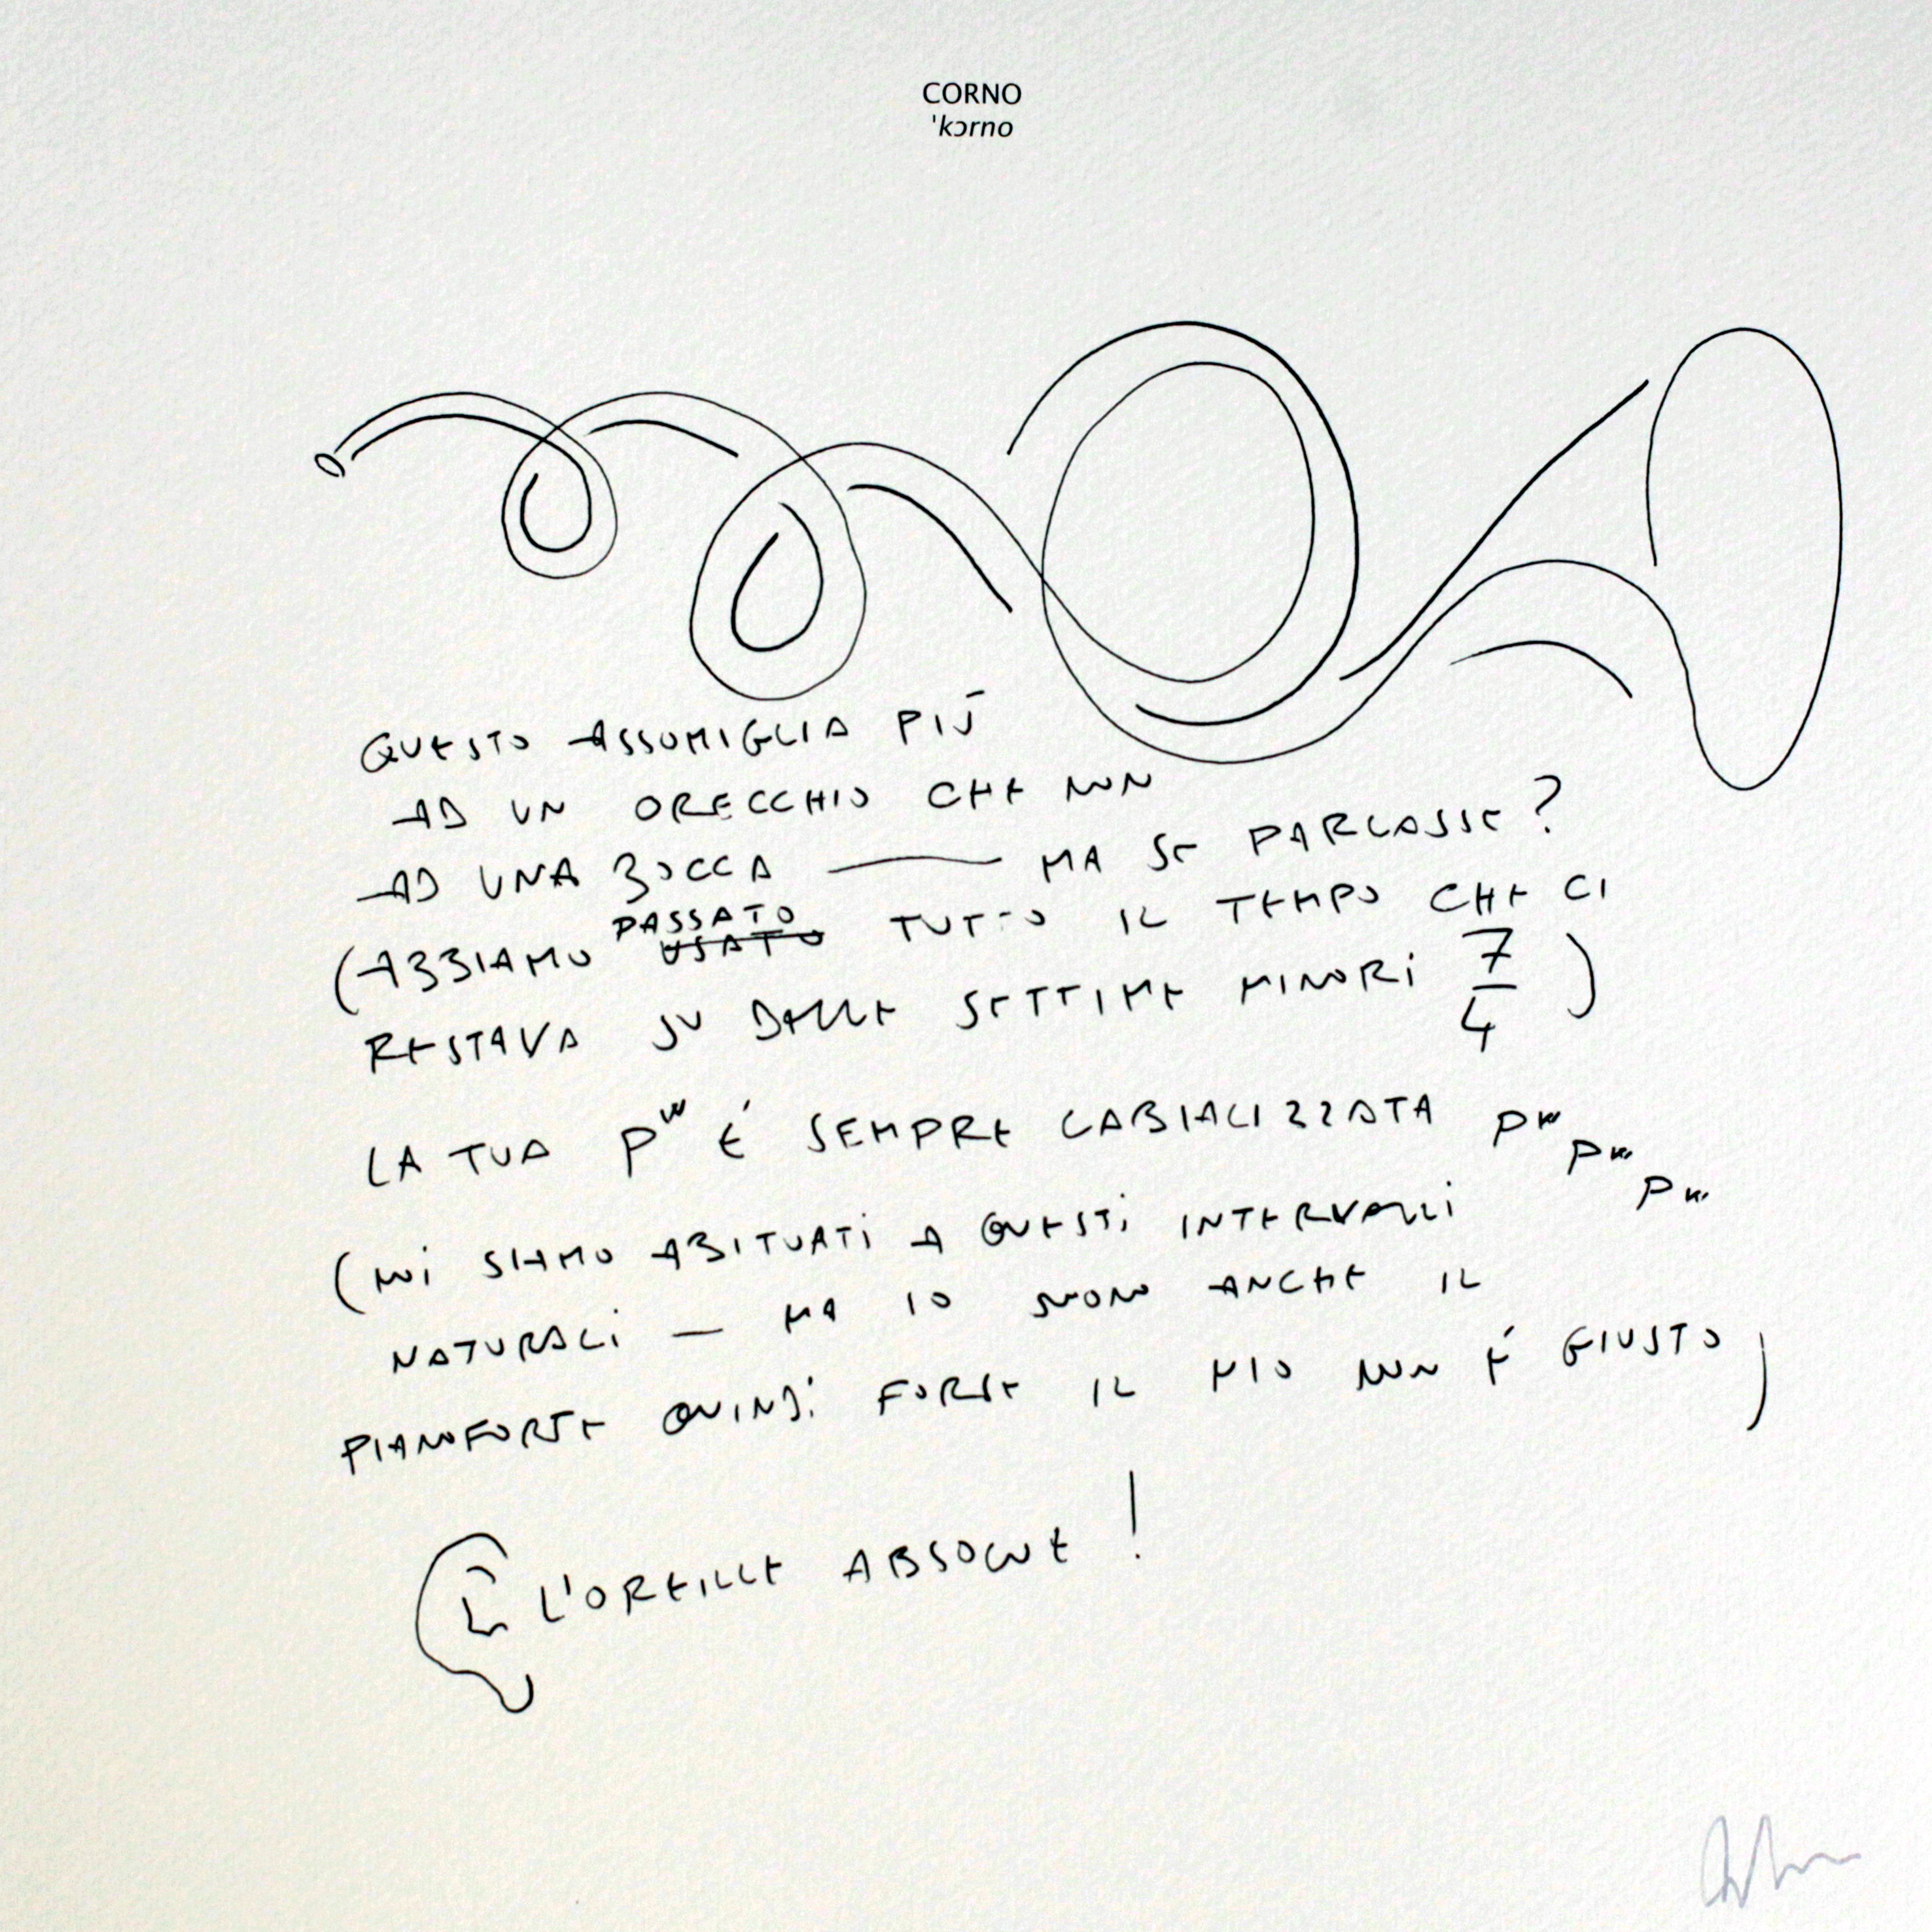 CORNO
'kɔrno
QUESTO ASSOMIGLIA PIÙ
AD UN ORECCHIO CHE NON
AD UNA BOCCA — MA SE PARLASSE?
PASSATO
(ABBIAMO USATO TUTTO IL TEMPO CHE CI
RESTAVA SU DELLE SETTIME MINORI 7/4)
LA TUA pʷ É SEMPRE LABIALIZZATA pʷ pʷ pʷ
(NOI SIAMO ABITUATI A QUESTI INTERVALLI
NATURALI — MA IO SUONO ANCHE IL
PIANOFORTE QUINDI FORSE IL MIO NON É GIUSTO)
L'OREILLE ABSOLUE!